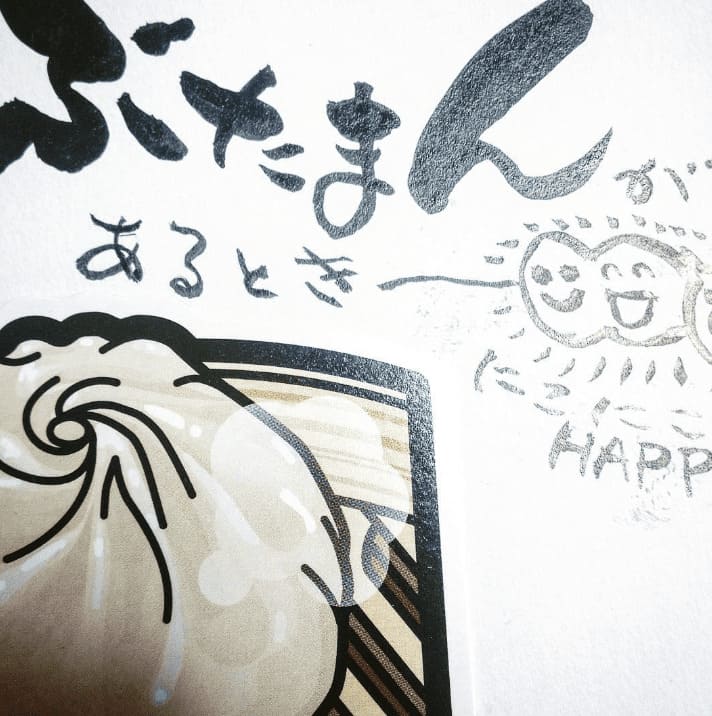 ぶたまん
が
あるとき
にこにこ
HAPP